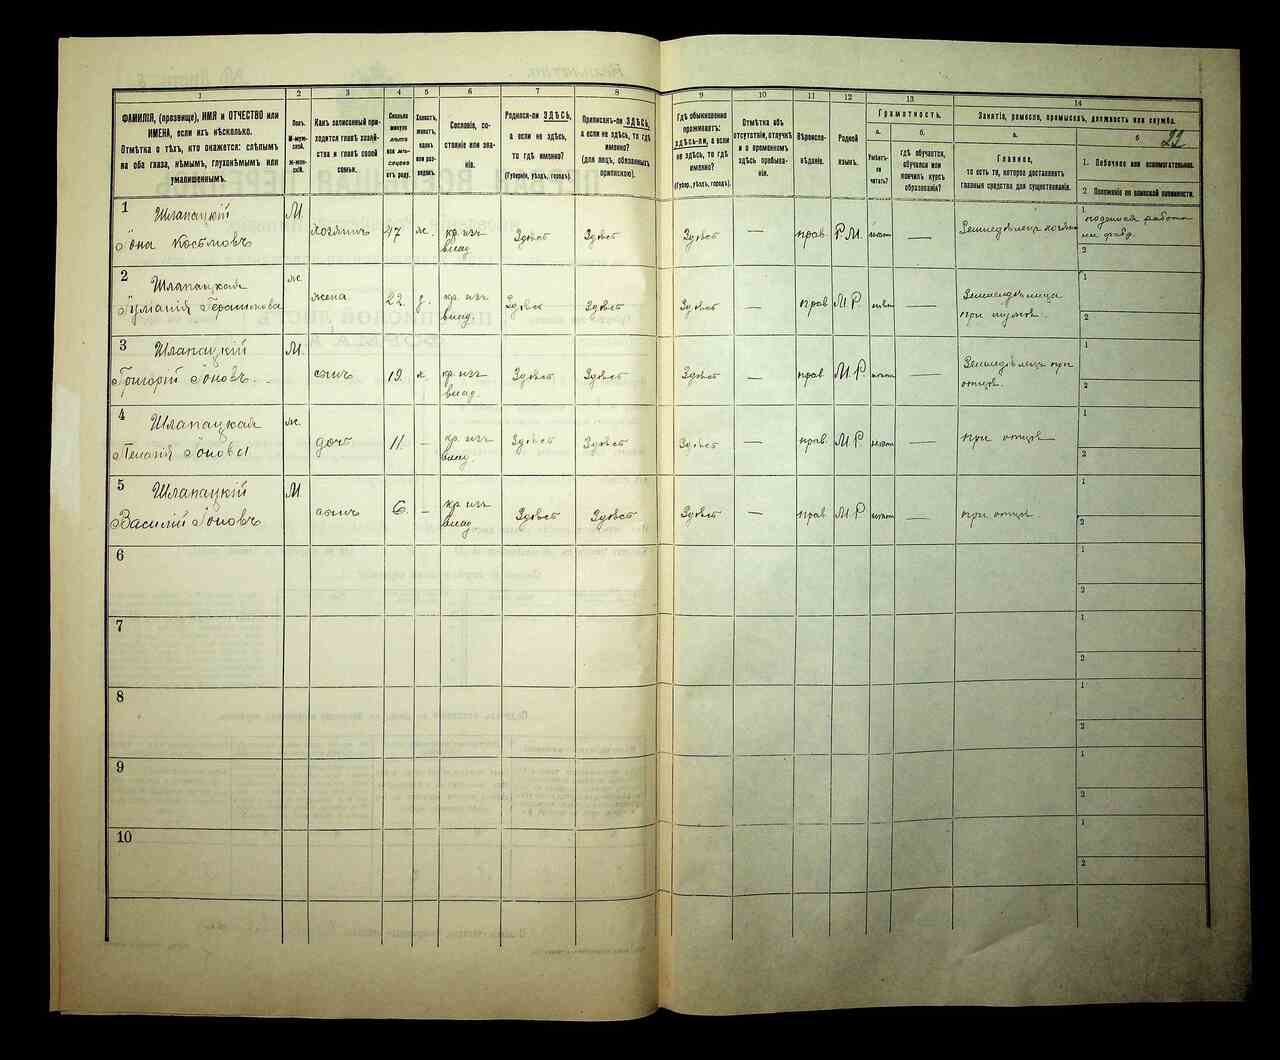 1
2
3
4
5
6
7
8
9
10
11
12
13
14
ФАМИЛІЯ, (прозвище), ИМЯ и ОТЧЕСТВО или
ИМЕНА, если ихъ нѣсколько.
Отмѣтка о тѣхъ, кто окажется: слѣпымъ
на оба глаза, нѣмымъ, глухонѣмымъ или
умалишеннымъ.
Полъ.
М-муж-
ской.
Ж-жен-
скій.
Какъ записанный при-
ходится главѣ хозяй-
ства и главѣ своей
семьи.
Сколько
минуло
лѣтъ
или мѣ-
сяцевъ
отъ роду.
Холостъ,
женатъ,
вдовъ
или раз-
веденъ.
Сословіе, со-
стояніе или зва-
ніе.
Родился-ли ЗДѢСЬ,
а если не здѣсь,
то гдѣ именно?
(Губернія, уѣздъ, городъ).
Приписанъ-ли ЗДѢСЬ,
а если не здѣсь, то гдѣ
именно?
(для лицъ, обязанныхъ
припискою).
Гдѣ обыкновенно
проживаетъ:
ЗДѢСЬ-ЛИ, а если
не здѣсь, то гдѣ
именно?
(Губер., уѣздъ, городъ).
Отмѣтка объ
отсутствіи, отлучкѣ
и о временномъ
здѣсь пребыва-
ніи.
Вѣроиспо-
вѣданіе.
Родной
языкъ.
Грамотность.
а.
б.
Умѣетъ-
ли
читать?
гдѣ обучается,
обучался или
кончилъ курсъ
образованія?
Занятіе, ремесло, промыселъ, должность или служба.
а.
б
22
Главное,
то есть то, которое доставляетъ
главныя средства для существованія.
1. Побочное или вспомогательное.
2 Положеніе по воинской повинности.
1
Шлапацкій
М.
хозяинъ
47
ж.
кр. изъ
влад.
Здѣсь
Здѣсь
Здѣсь
—
прав.
—
1
2
2
Шлапацкая
ж.
жена
22.
кр. изъ
влад.
Здѣсь
Здѣсь
Здѣсь
—
прав
М.Р.
—
1
2
3
Шлапацкій
Григорій Іоновъ.
М.
сынъ
19.
х.
кр. изъ
влад.
Здѣсь
Здѣсь
Здѣсь
—
прав
М.Р.
—
при
отцѣ.
1
2
4
Шлапацкая
ж.
доч
11.
–
кр. изъ
влад.
Здѣсь
Здѣсь
Здѣсь
—
прав.
М.Р.
—
при отцѣ
1
2
5
Шлапацкій
Василій Іоновъ
М.
сынъ
6.
–
кр. изъ
влад.
Здѣсь
Здѣсь
Здѣсь
—
прав
М.Р
—
при отцѣ
1
2
6
1
2
7
1
2
8
1
2
9
1
2
10
1
2